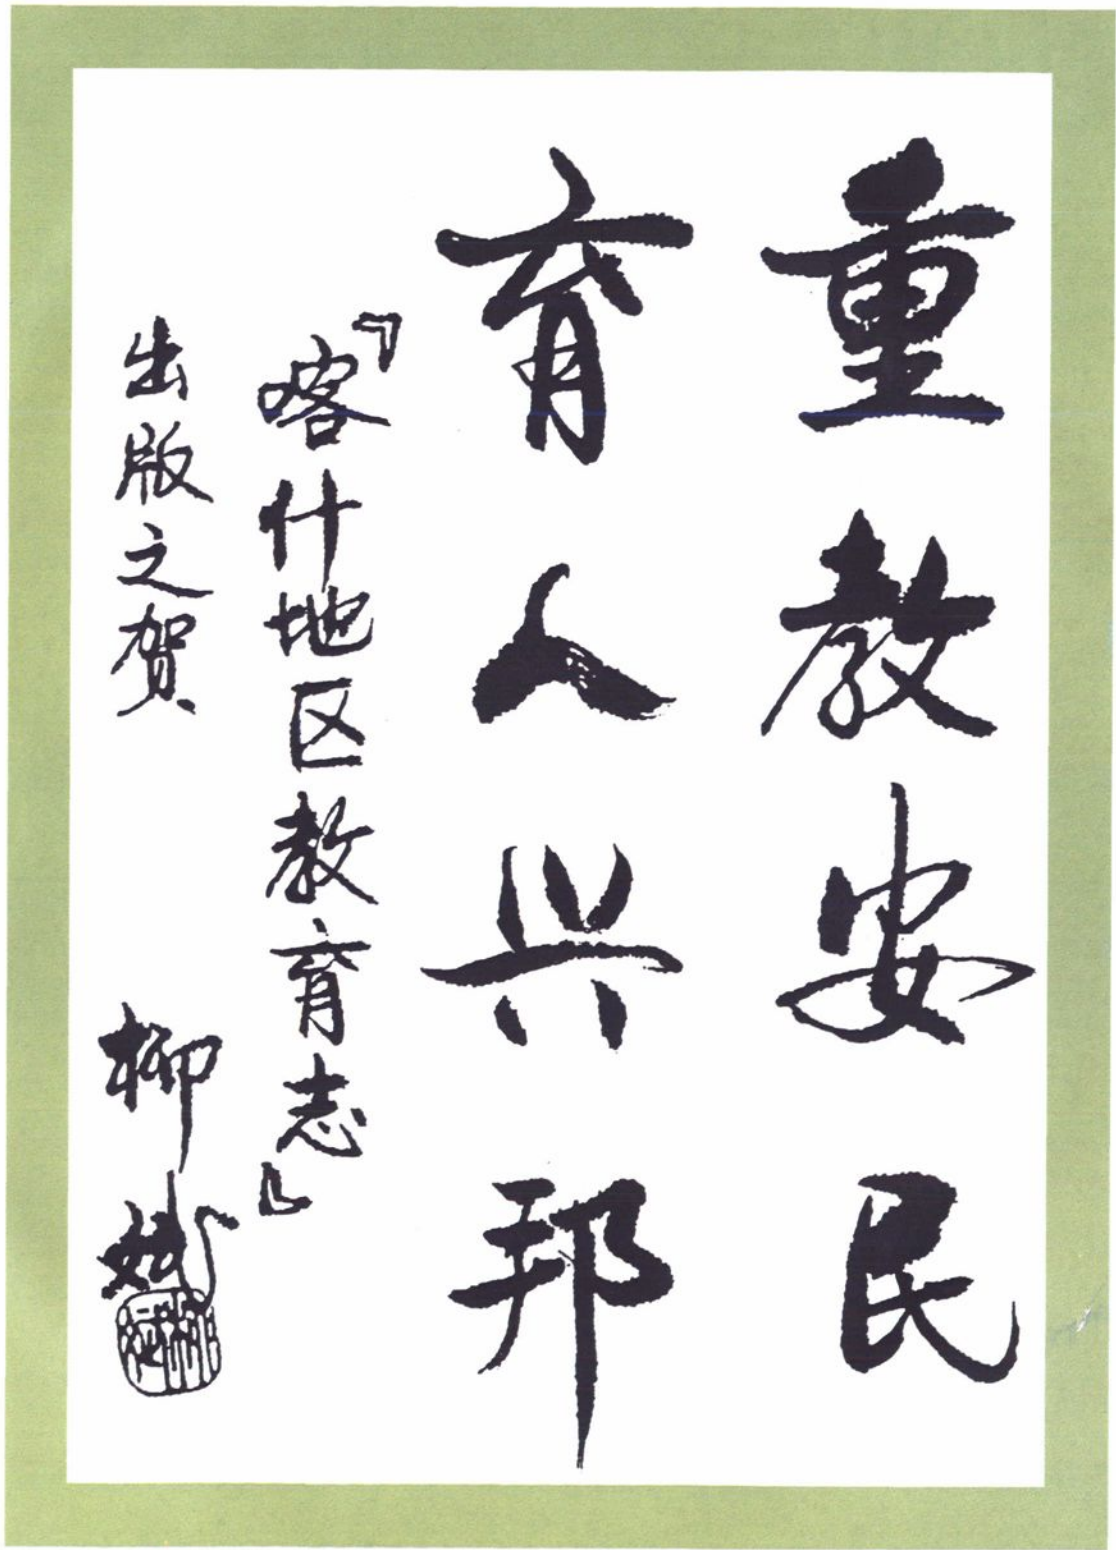 重教安民
育人兴邦
『喀什地区教育志』
出版之贺
柳斌